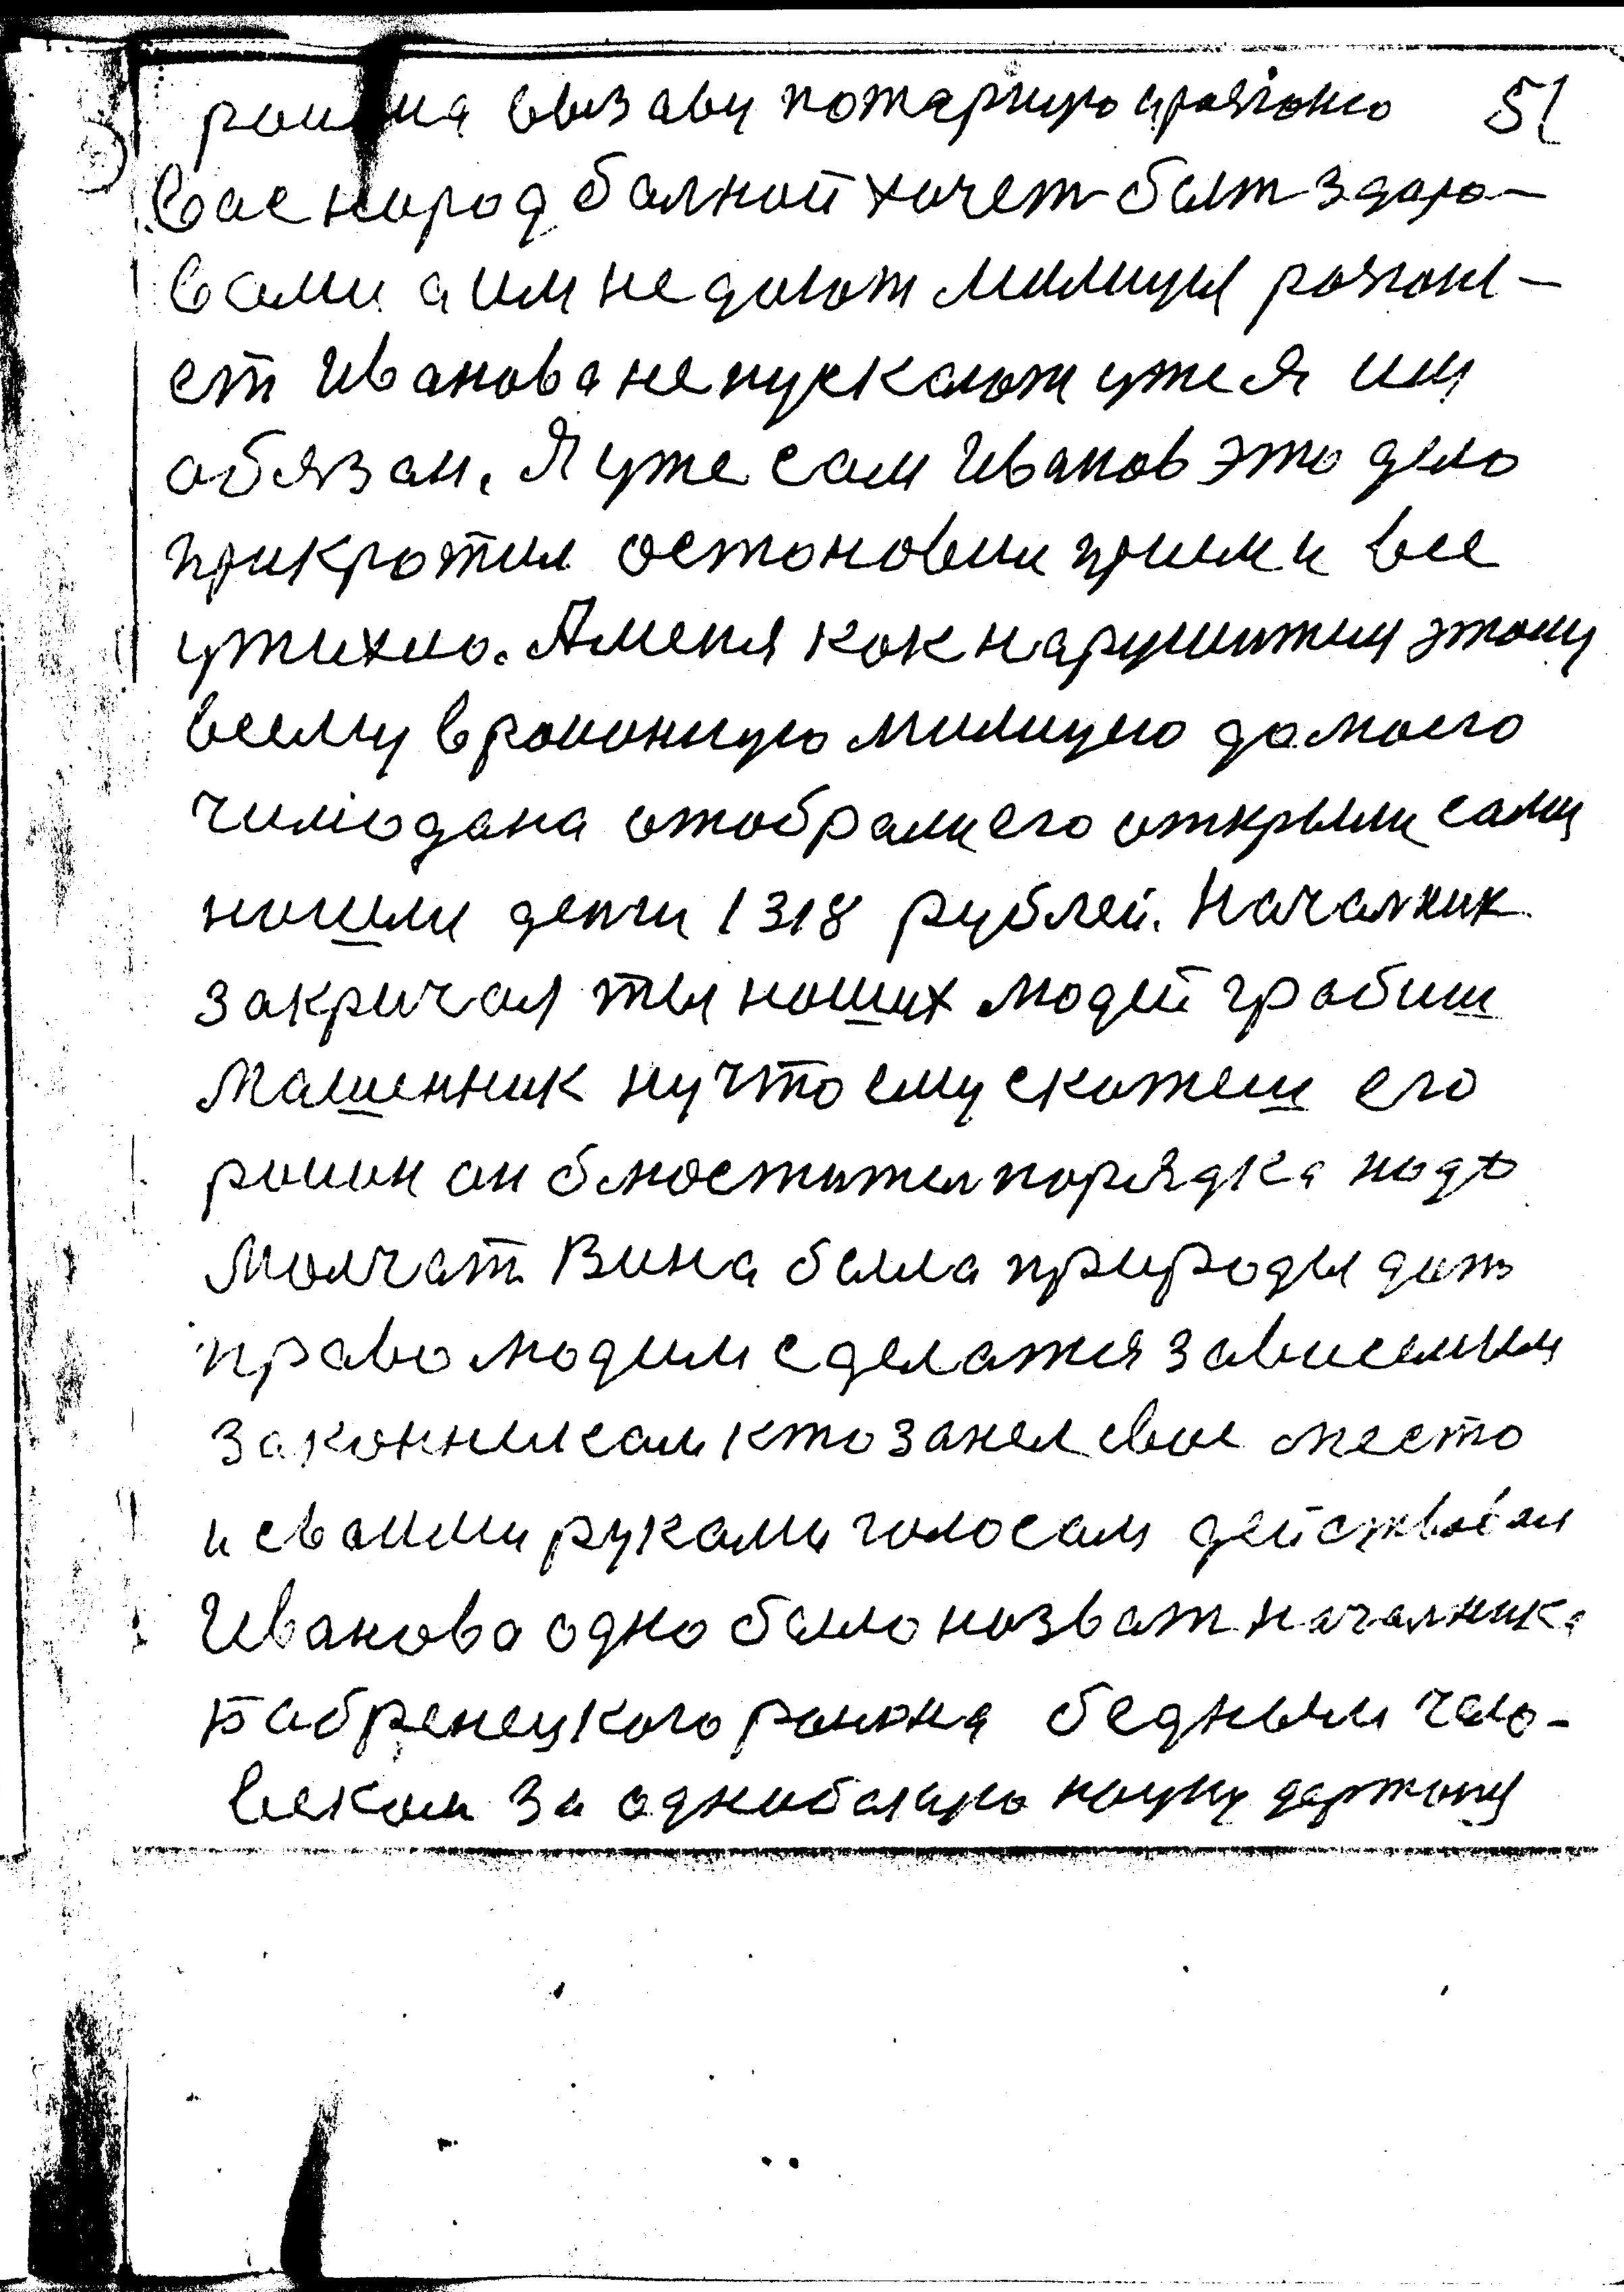 роиона вызаву пожарную и розгоню 51
вас народ балной хочет быт здаро-
вами а им не дают милиция розгони-
ет Иванова не пускают уже я им
обязан. Я уже сам Иванов это дело
прикротил остоновил прием и все
утихло. А меня как нарушителя этому
всему в роионную милицию до моего
чимодана отобрали его открыли сами
ношли денги 1318 рублей. Началник
закричал ты ноших людей грабиш
Машенник ну что ему скажеш его
роион он блюстител порядка надо
Молчат. Вина была природы дат
право людям сделатся зависемым
законникам кто занел свое место
и своими руками голосам действовал
Иванова одно было назват началника
Бабренецкого роиона бедным чело-
веком за однобакую науку держащ